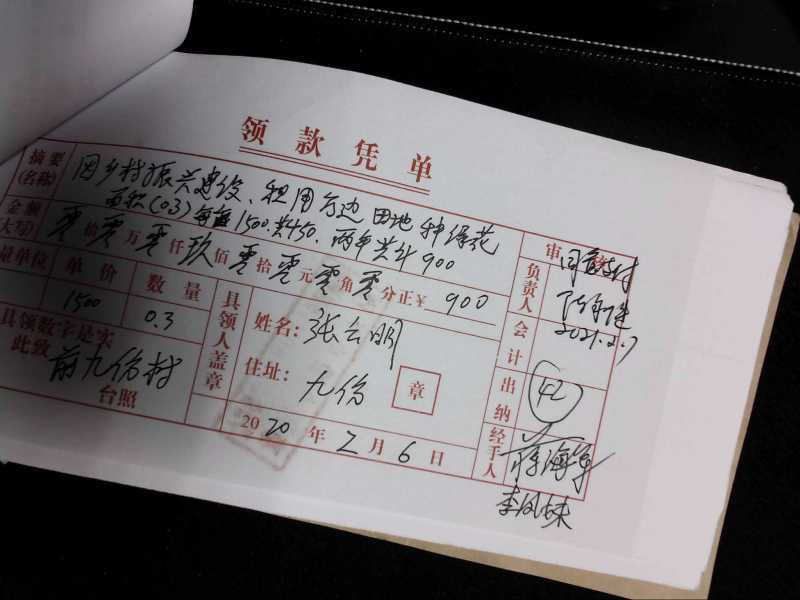 领款凭单
摘要(名称) 因乡村振兴建设、租用方边田地种绿花
面积(0.3)每亩1500.共450.两年共计900
金额(大写) 零拾零万零仟玖佰零拾零元零角零分正¥900
量单位 单价 数量
1500 0.3
具领数字是实
此致 前九份村
台照
具领人盖章
姓名: 张云明
住址: 九份
章
2020年2月6日
审
同意支付
负责人
2021.2.7
会计
出纳
42
经手人
蒋海军
李凤妹